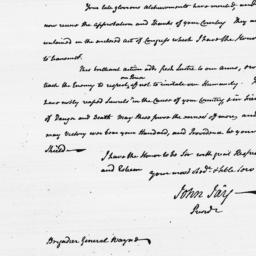 Your late glorious Atchievements have
now receive the Approbation and Thanks of your Country They are
contained in the enclosed Act of Congress which I have the Honor
to transmit.
This brilliant action adds fresh Lustre to our Arms, and
on Powr
teach the Enemy to respect, if not to imitate our Humanity.
have nobly reaped Laurels in the Cause of your Country & in
of Danger and Death. May these prove the earnest of more, and
may Victory ever bear your Standard, and Providence be your
Shield.—
I have the Honor to be Sir with great Respect
and Esteem
your most Obdt. & Hble Serv
John Jay
Presdt
Brigadier General Wayne